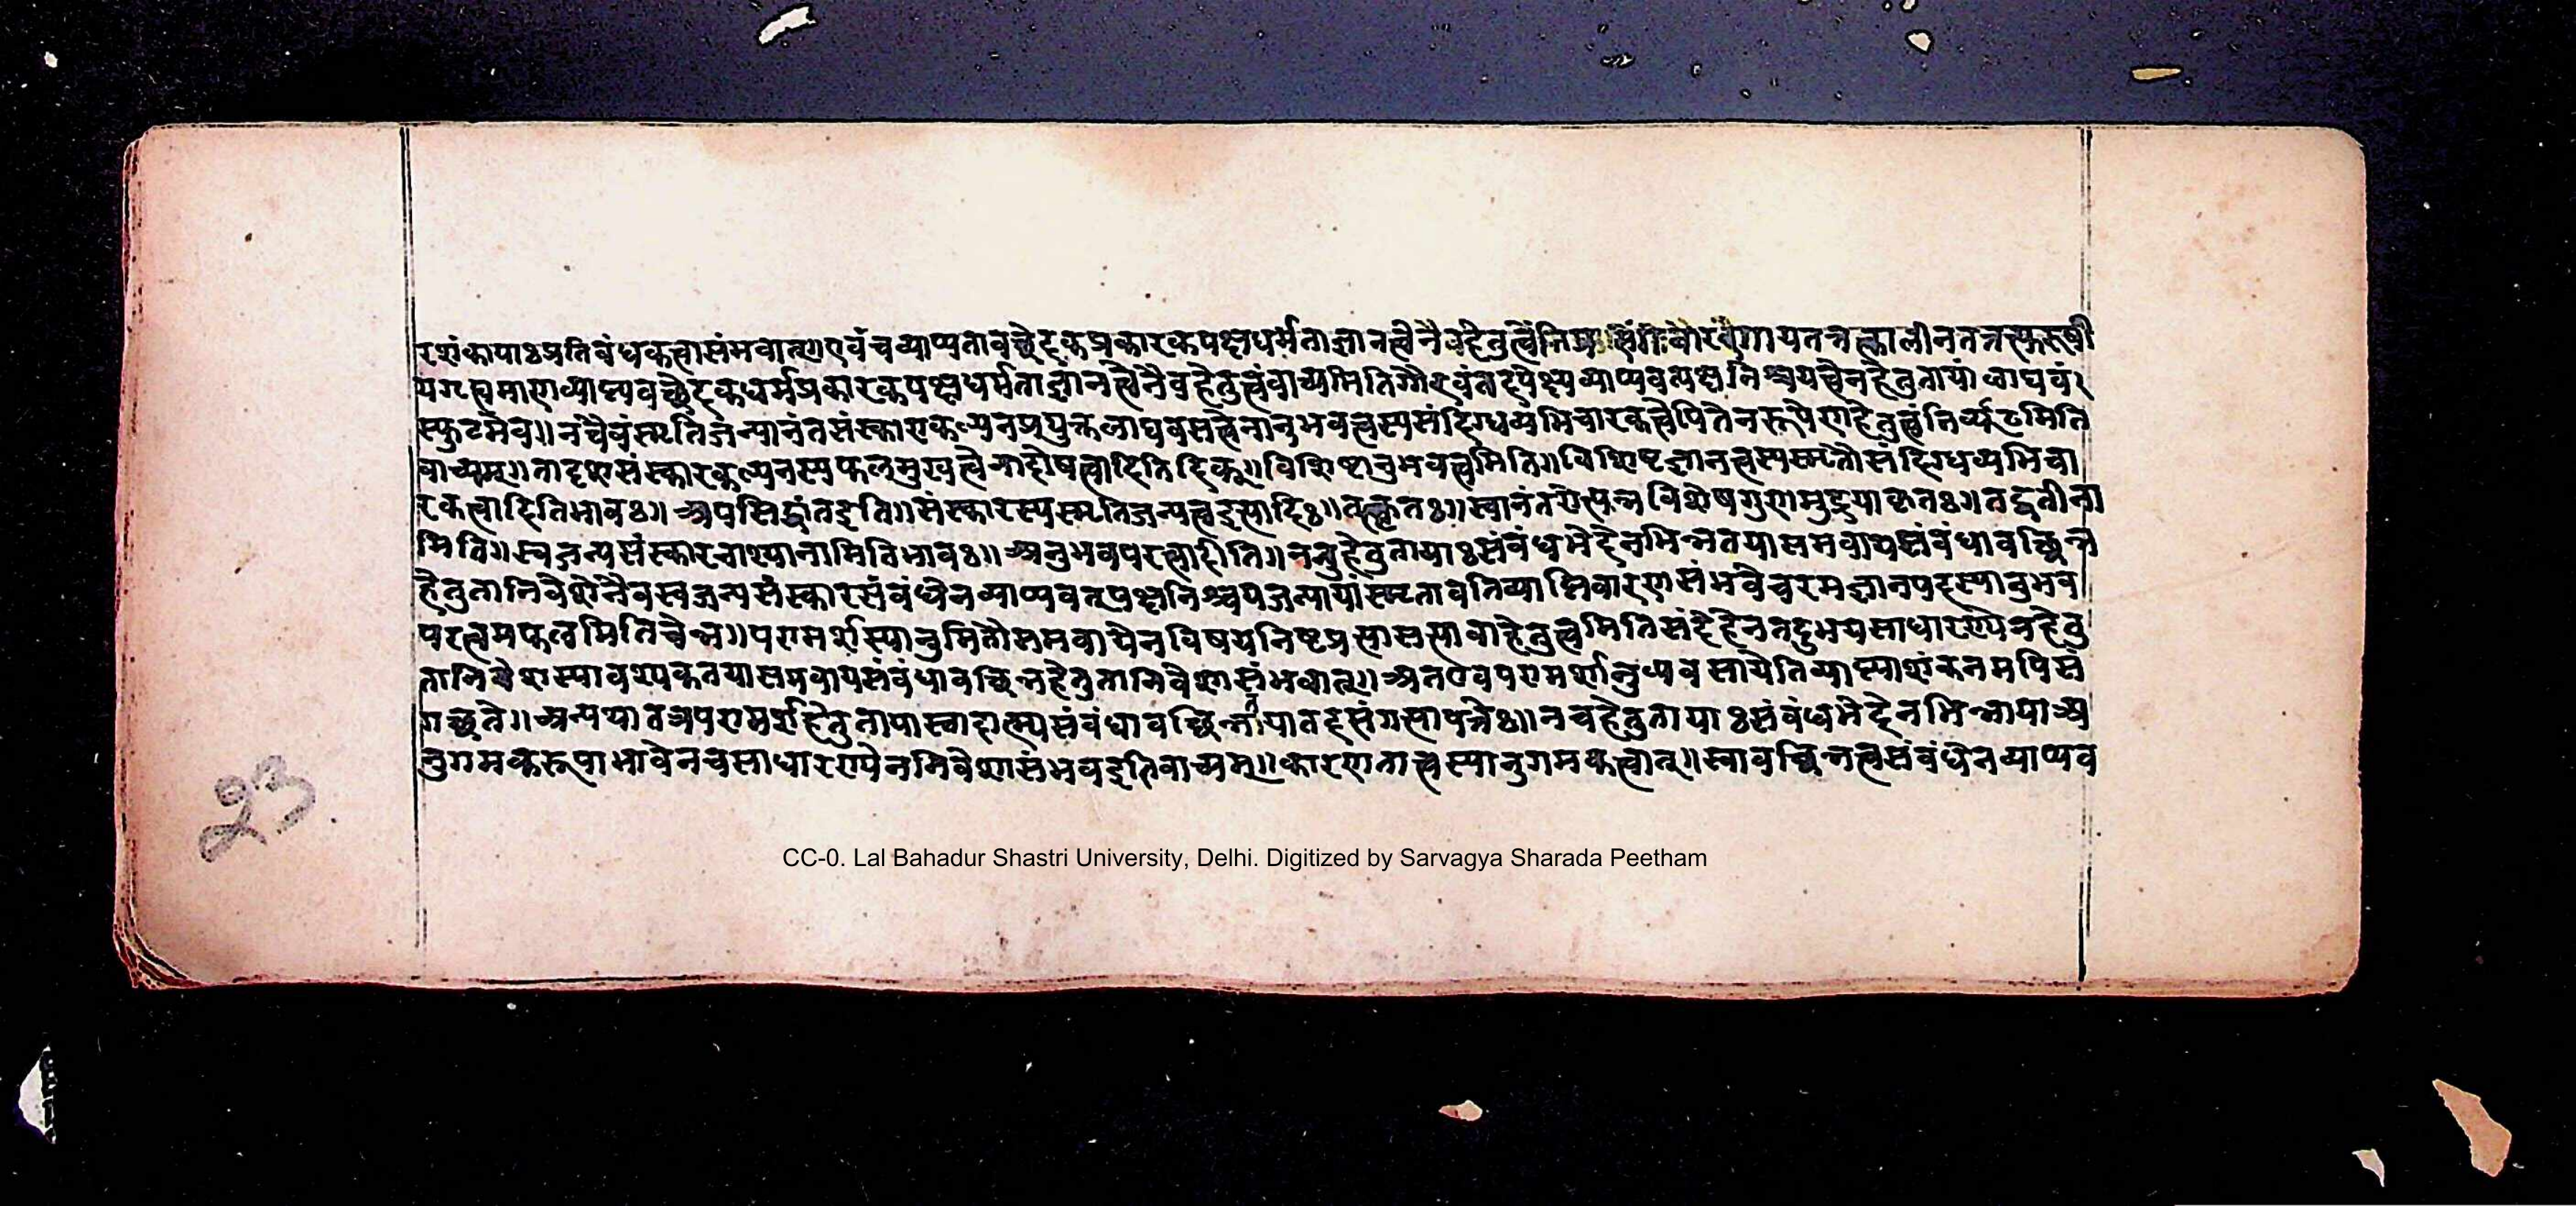 रशंकायाः प्रतिबंधकत्वासंभवात्॥ एवं च व्याप्यतावच्छेदकप्रकारकपक्षधर्मताज्ञानत्वेनैव हेतुत्वं गायतत्रतत्कालीनतत्तत्पुरुषी
यगत्वमाणव्याप्यवच्छेदकधर्मप्रकारकपक्षधर्मताज्ञानत्वेनैव हेतुत्वं वाच्यमिति गौरवं तदपेक्ष्य व्याप्यवत्पक्षनिश्चयत्वेन हेतुतायां लाघवं
स्फुटमेव॥ न चैवं स्मृतिजन्यानंतसंस्कारकल्पनप्रयुक्तलाघवसत्वेनानुभवत्वस्य संदिग्धव्यभिचारकत्वेपि तेन रूपेण हेतुत्वं निर्व्यूढमिति
वाच्यम्॥ तादृशसंस्कारकल्पनस्य फलमुखत्वेनादोषत्वादिति दिक्॥ विशिष्टानुभवत्वमिति॥ विशिष्टज्ञानत्वस्य स्मृतौ संदिग्धव्यभिचा
रकत्वादिति भावः॥ अपसिद्धांत इति॥ संस्कारस्य स्मृतिजन्यत्व इत्यादिः॥ वस्तुतः॥ स्वानंतरोत्पन्नविशेषगुण तद्वतीना
मिति॥ स्वजन्यसंस्कारनाश्यानामिति भावः॥ अनुभवपरत्वादीति॥ ननु हेतुतायाः संबंधभेदेन भिन्नतया समवायसंबंधावच्छिन्न
हेतुतानिवेशेनैव स्वजन्यसंस्कारसंबंधेन व्याप्यवत्पक्षनिश्चयजन्यायां स्मृतावतिव्याप्तिवारणसंभवे चरमज्ञानपदस्यानुभव
परत्वमफलमिति चेन्न॥ परामर्शस्यानुमितौ समवायेन विषयनिष्टप्रत्यासत्या वा हेतुत्वमिति संदेहेन तदुभयसाधारण्येन हेतु
तानिवेशस्यावश्यकतया समवायसंबंधावच्छिन्नहेतुतानिवेशासंभवात्॥ अत एव परामर्शानुव्यवसायेतिव्याप्त्याशंकनमपि सं
गच्छते॥ अन्यथा तत्र परामर्शहेतुतायास्तादात्म्यसंबंधावच्छिन्नतया तदसंगत्यापत्तेः॥ न च हेतुतायाः संबंधभेदेन भिन्नाया अ
नुगमकरूपाभावेन च साधारण्येन निवेशासंभव इति वाच्यम्॥ कारणतात्वस्यानुगमकत्वात्॥ स्वावच्छिन्नत्वसंबंधेन व्याप्यव
23
CC-0. Lal Bahadur Shastri University, Delhi. Digitized by Sarvagya Sharada Peetham